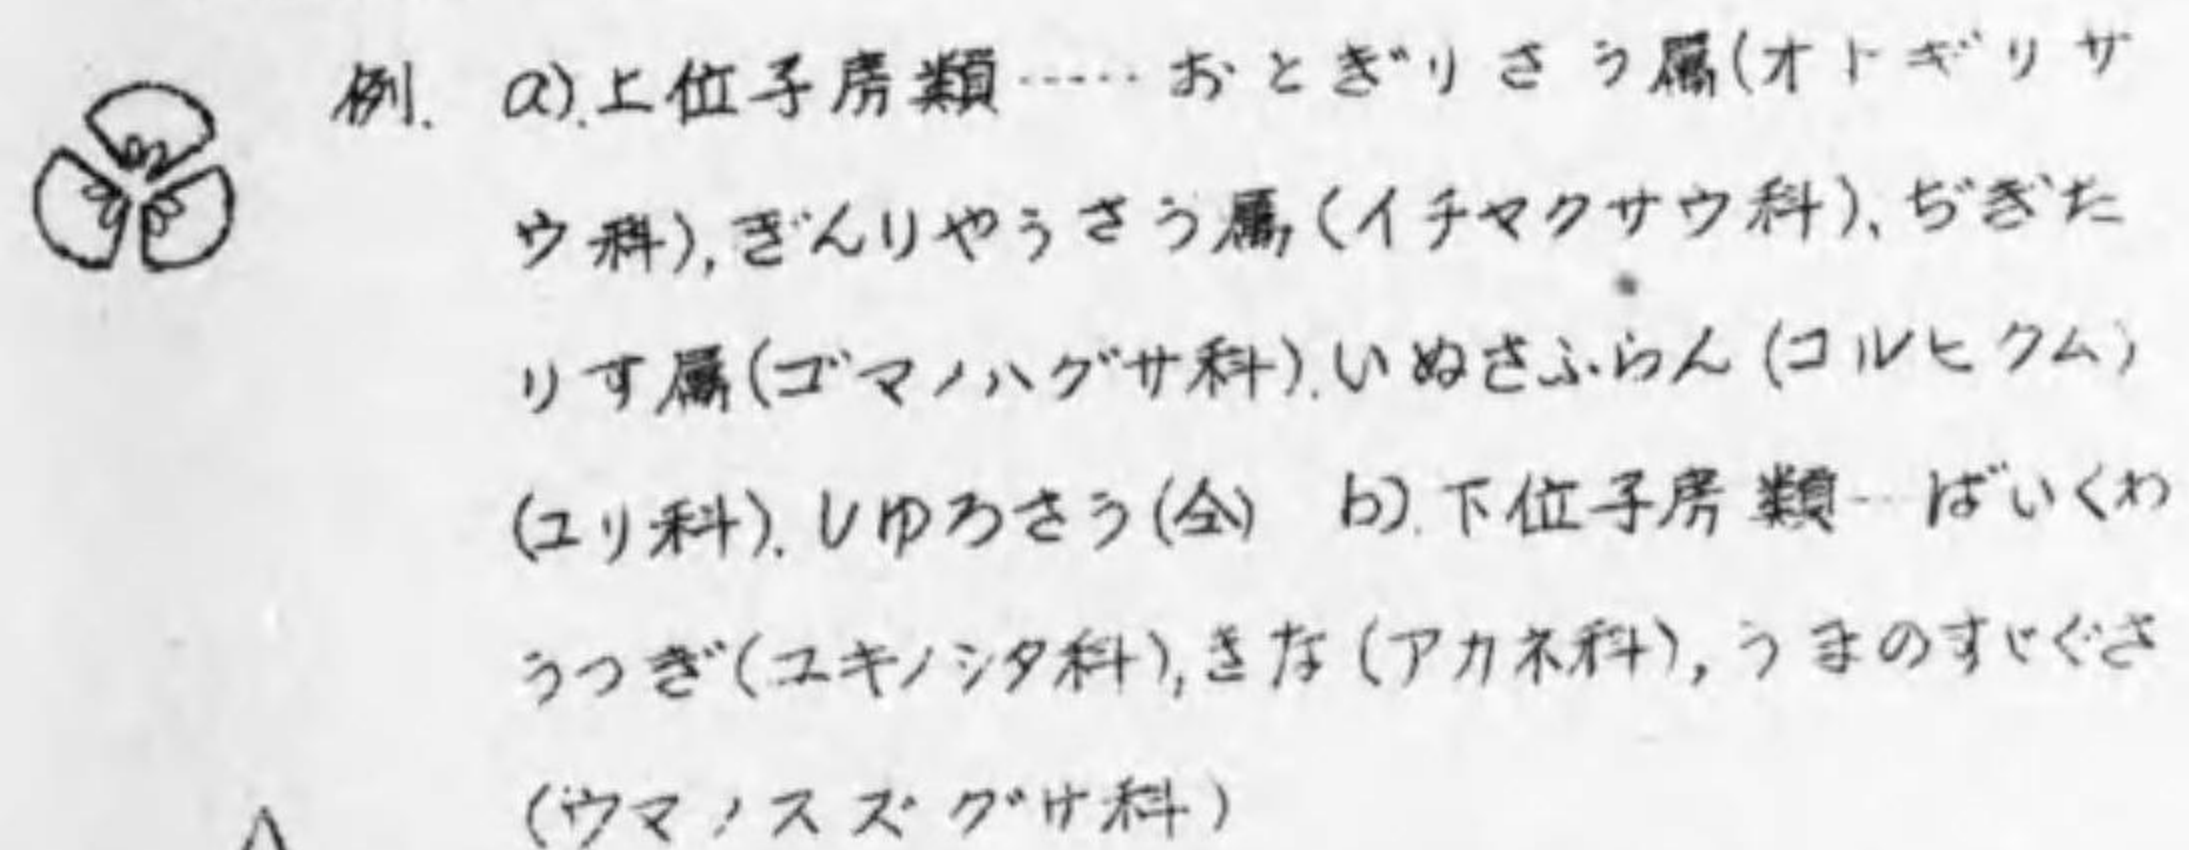 例. a).上位子房類……おとぎりさう属(オトギリサ
ウ科),ぎんりやうさう属,(イチヤクサウ科)、ぢぎた
りす属(ゴマノハグサ科).いぬさふらん(コルヒクム)
(ユリ科).しゆろさう(仝) b).下位子房類…ばいくわ
うつぎ(ユキノシタ科),きな(アカネ科),うまのすゞぐさ
(ウマノスズグサ科)